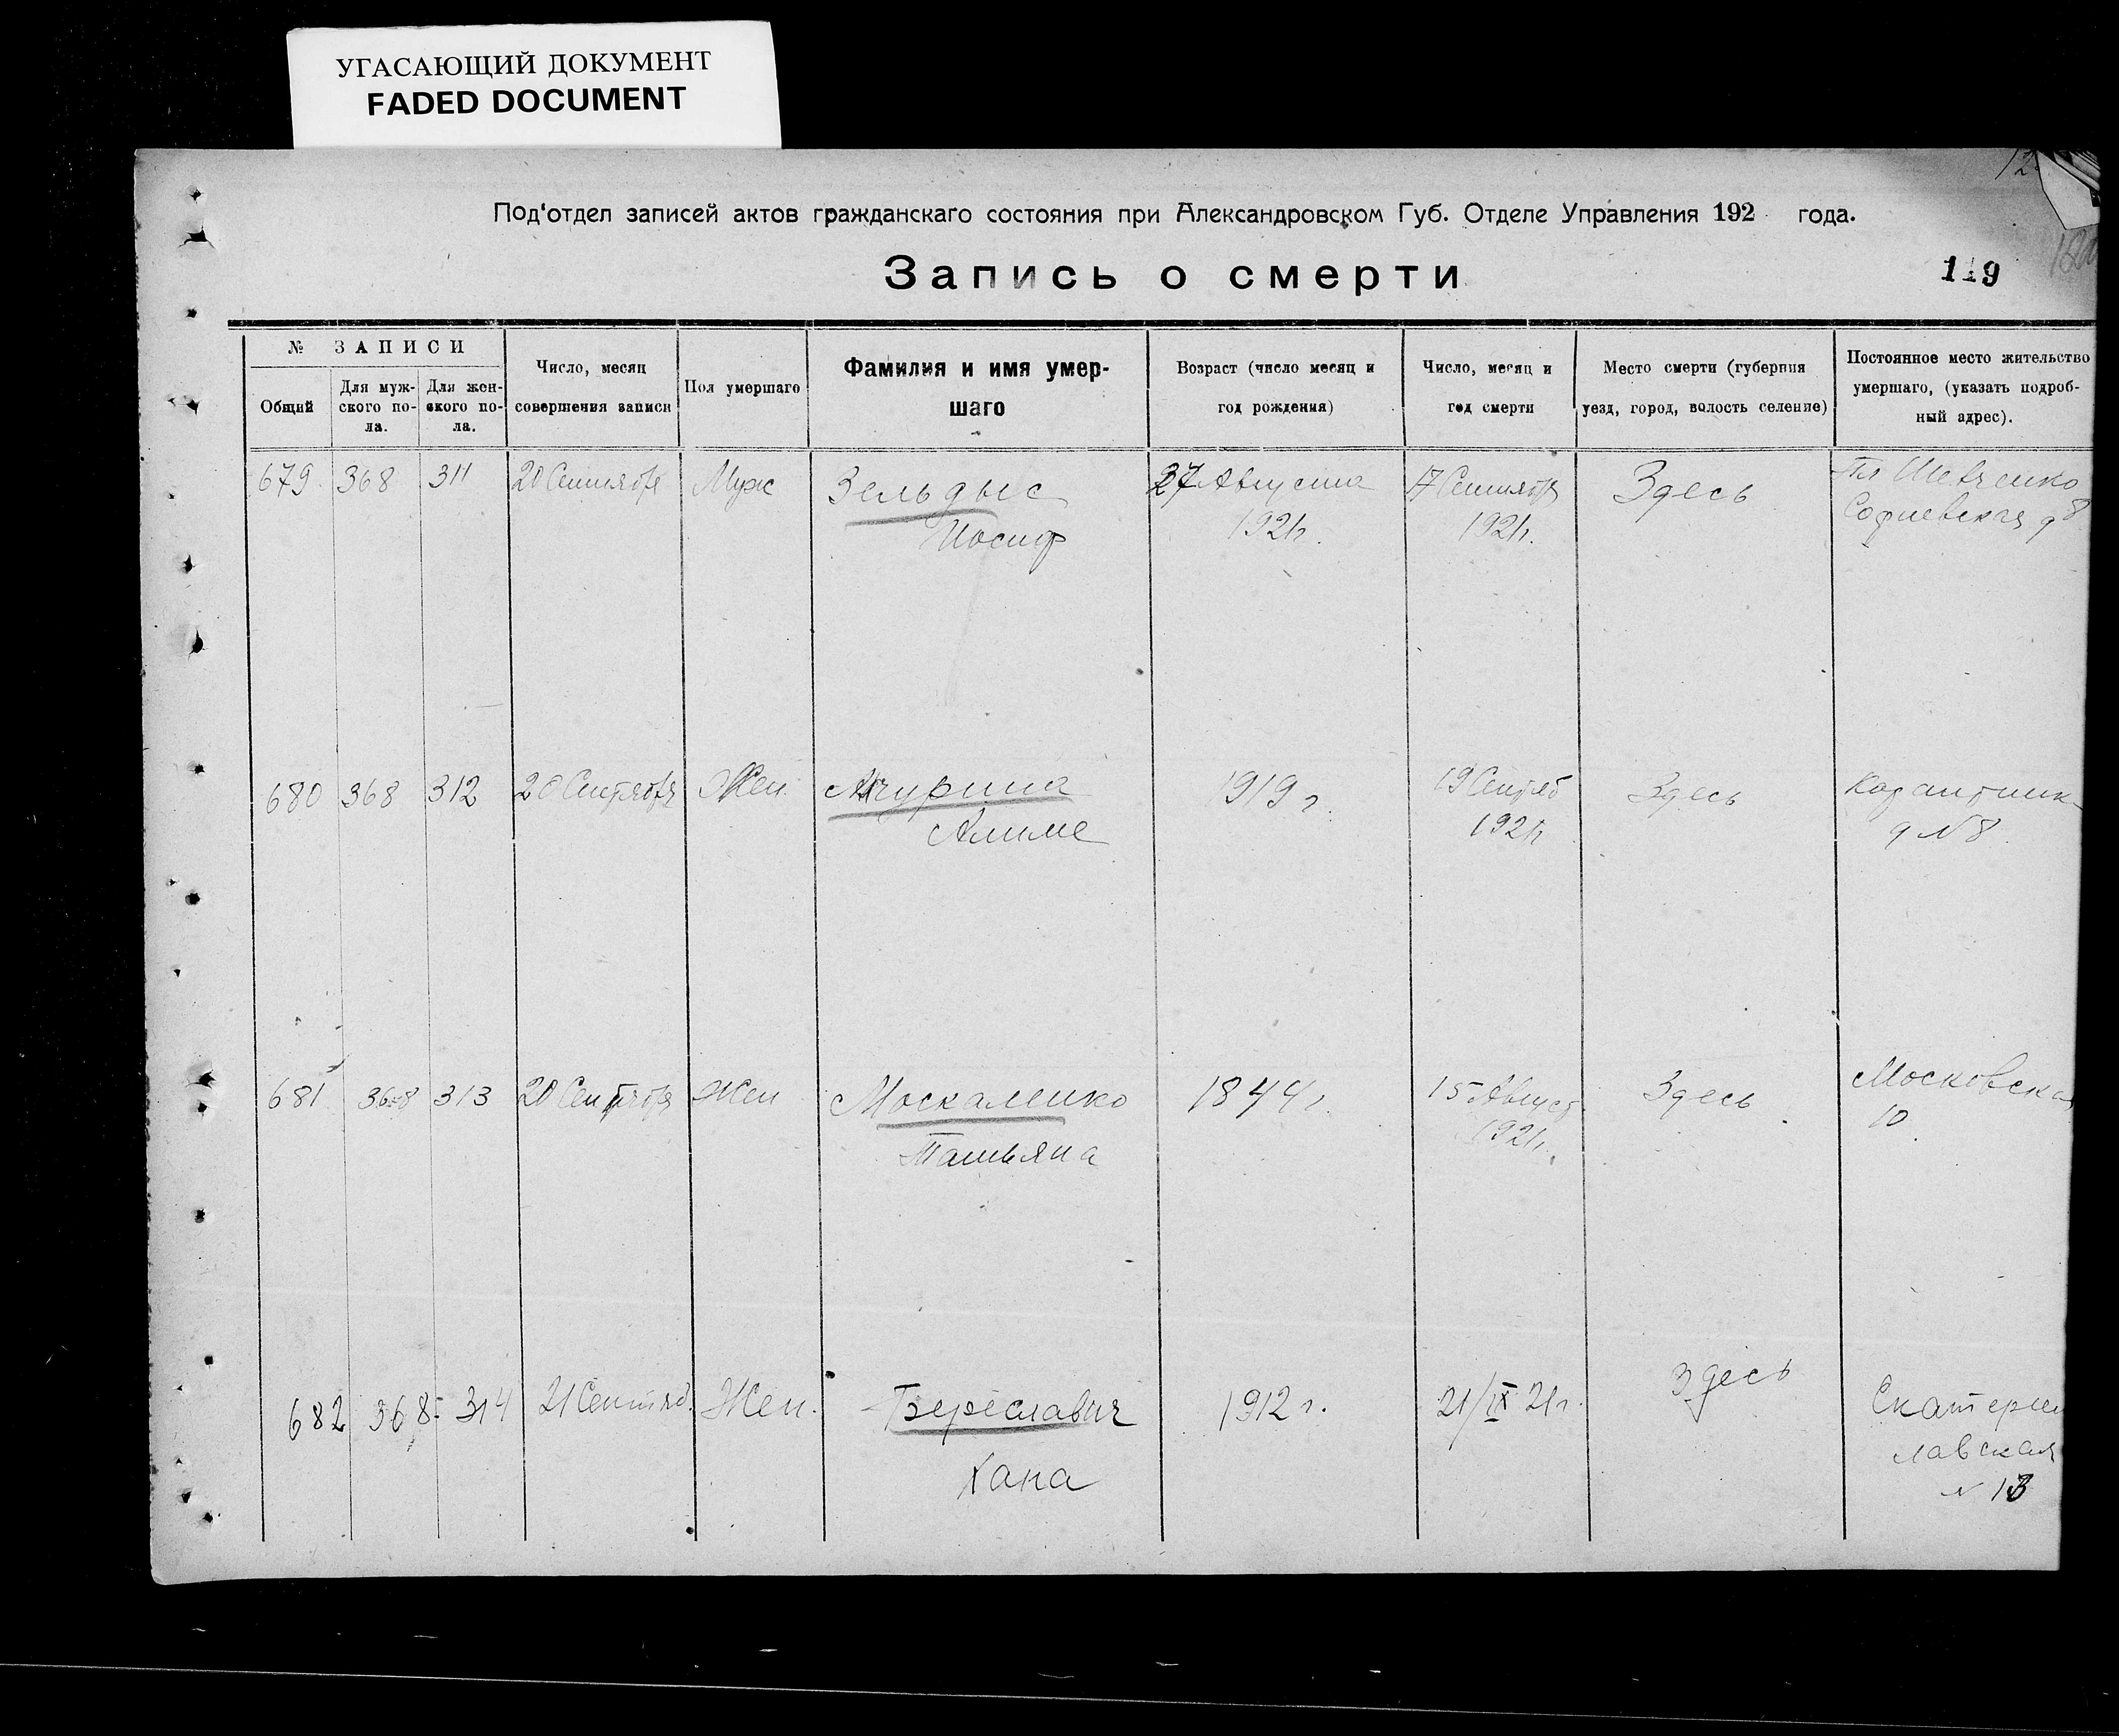 УГАСАЮЩИЙ ДОКУМЕНТ
FADED DOCUMENT
Под'отдел записей актов гражданскаго состояния при Александровском Губ. Отделе Управления 192 года.
Запись о смерти
119
№ ЗАПИСИ
Общий
Для муж-
ского по-
ла.
Для жен-
ского по-
ла.
Число, месяц
совершения записи
Пол умершаго
Фамилия и имя умер-
шаго
Возраст (число месяц и
год рождения)
Число, месяц и
год смерти
Место смерти (губерния
уезд, город, волость селение)
Постоянное место жительство
умершаго, (указать подроб-
ный адрес).
679 368 311 20 Сентября Муж Зельдыс 27 Августа 17 Сентября Здесь Пл Шевченко
Иосиф 1921г. 1921г. Софиевская д 8
680 368 312 20 Сентября Жен 1919 г. 19 Сентяб Здесь
Алиме 1921г д N 8
681 368 313 20 Сентября Жен Москаленко 1844г. 15 Август Здесь Московская
Татьяна 1921г. 10
682 368 314 21 Сентяб. Жен. Береславич 1912 г. 21/IX 21г. Здесь Екатерин
Хана лавская
N 13